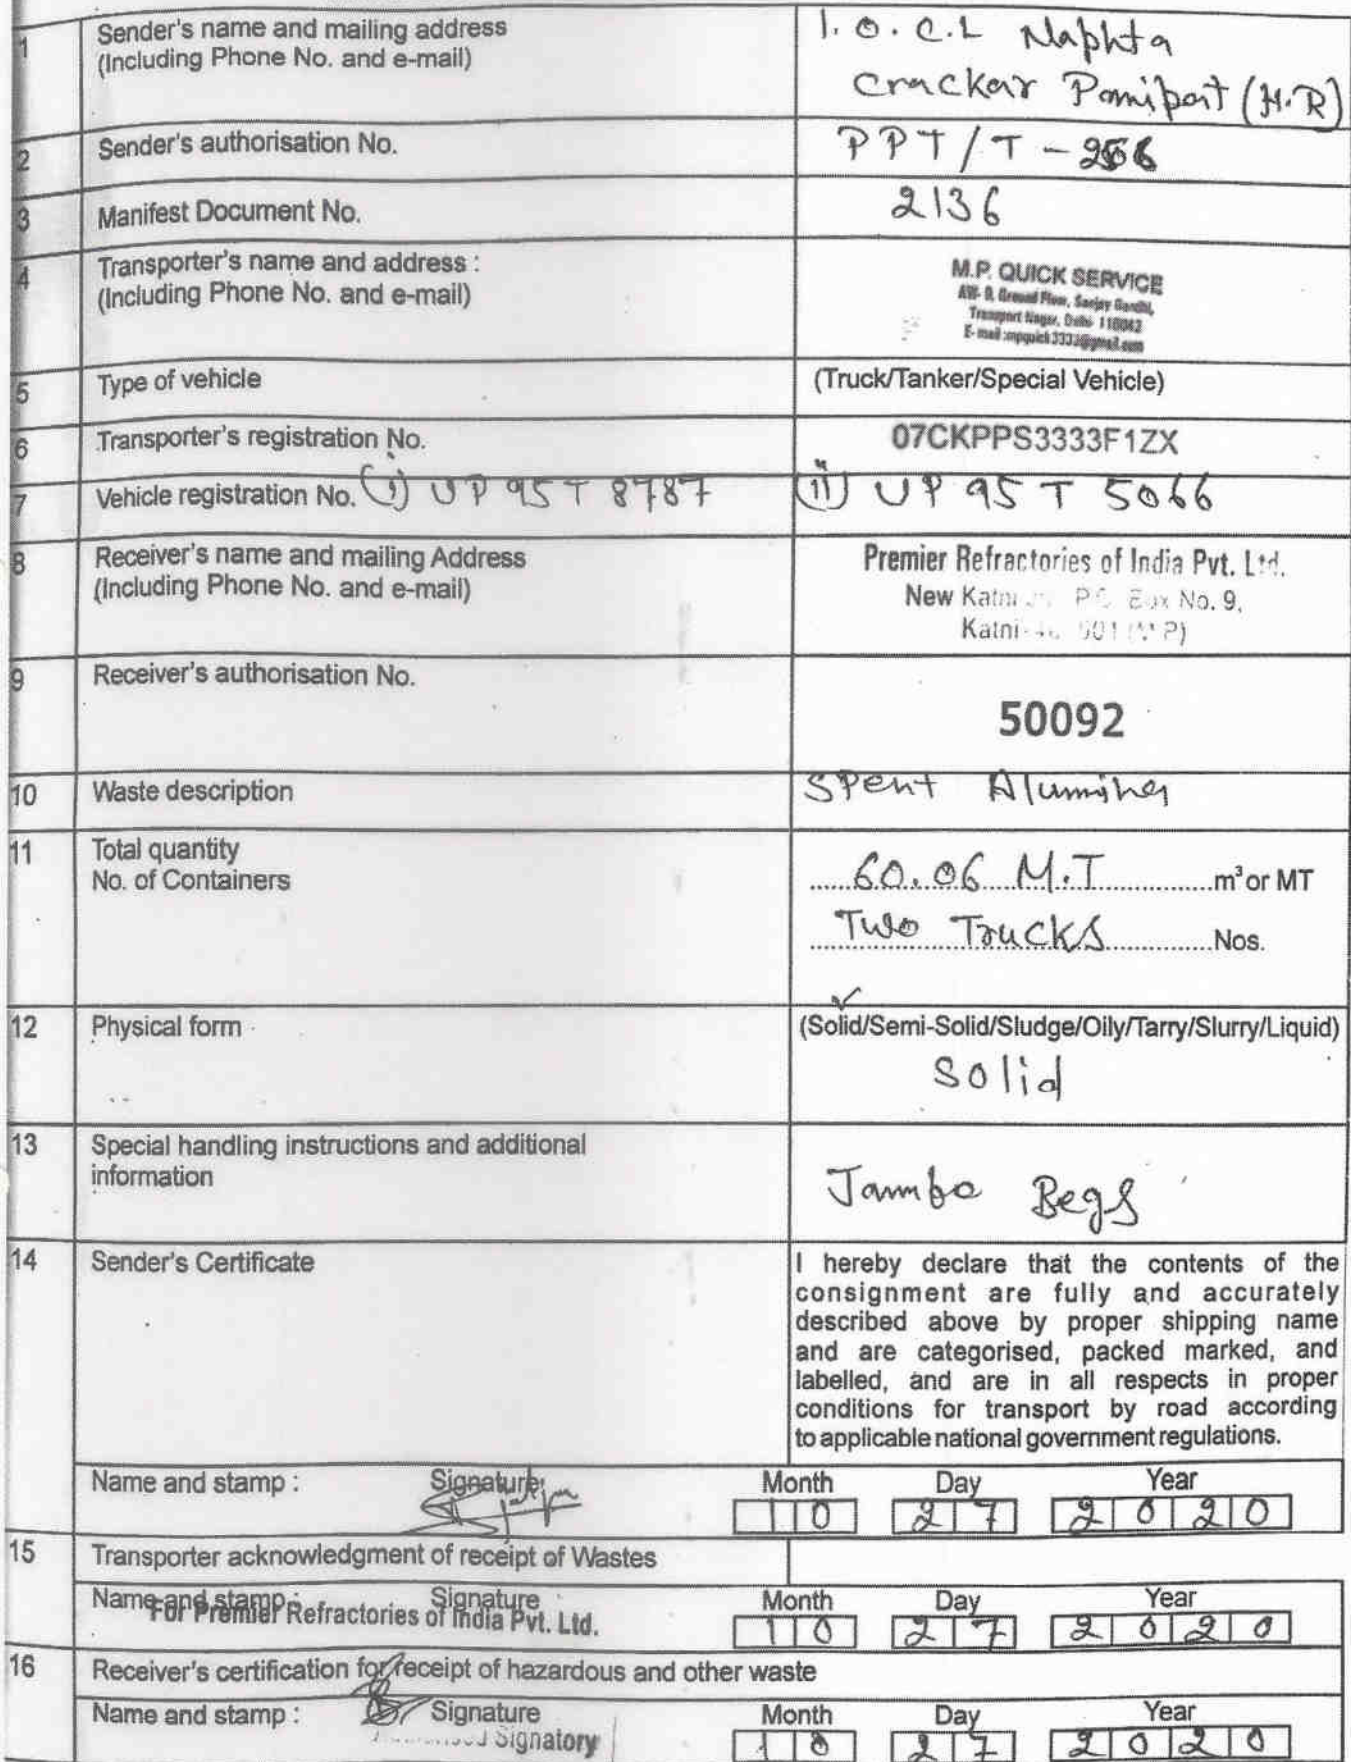 1 Sender's name and mailing address
(Including Phone No. and e-mail)
I.O.C.L Naphta
Crackar Panipat (H.R)
2 Sender's authorisation No. PPT/T-
3 Manifest Document No. 2136
4 Transporter's name and address :
(Including Phone No. and e-mail)
M.P. QUICK SERVICE
AW- 9, Ground Floor, Sanjay Gandhi,
Transport Nagar, Delhi- 110042
E-mail :mpquick3333@gmail.com
5 Type of vehicle (Truck/Tanker/Special Vehicle)
6 Transporter's registration No. 07CKPPS3333F1ZX
7 Vehicle registration No. (i) UP 95 T 8787 (ii) UP 95 T 5066
8 Receiver's name and mailing Address
(Including Phone No. and e-mail)
Premier Refractories of India Pvt. Ltd.
New Katni P.O. Box No. 9,
Katni- 501 (M.P)
9 Receiver's authorisation No.
50092
10 Waste description Spent Alumina
11 Total quantity
No. of Containers
60.06 M.T m³or MT
Two Trucks Nos.
12 Physical form (Solid/Semi-Solid/Sludge/Oily/Tarry/Slurry/Liquid)
Solid
13 Special handling instructions and additional
information
Jambo Begs
14 Sender's Certificate
I hereby declare that the contents of the
consignment are fully and accurately
described above by proper shipping name
and are categorised, packed marked, and
labelled, and are in all respects in proper
conditions for transport by road according
to applicable national government regulations.
Name and stamp : Signature: Month Day Year
10 27 2020
15 Transporter acknowledgment of receipt of Wastes
Name and stamp : Signature Month Day Year
For Premier Refractories of India Pvt. Ltd.
10 27 2020
16 Receiver's certification for receipt of hazardous and other waste
Name and stamp : Signature Month Day Year
Signatory
10 27 2020